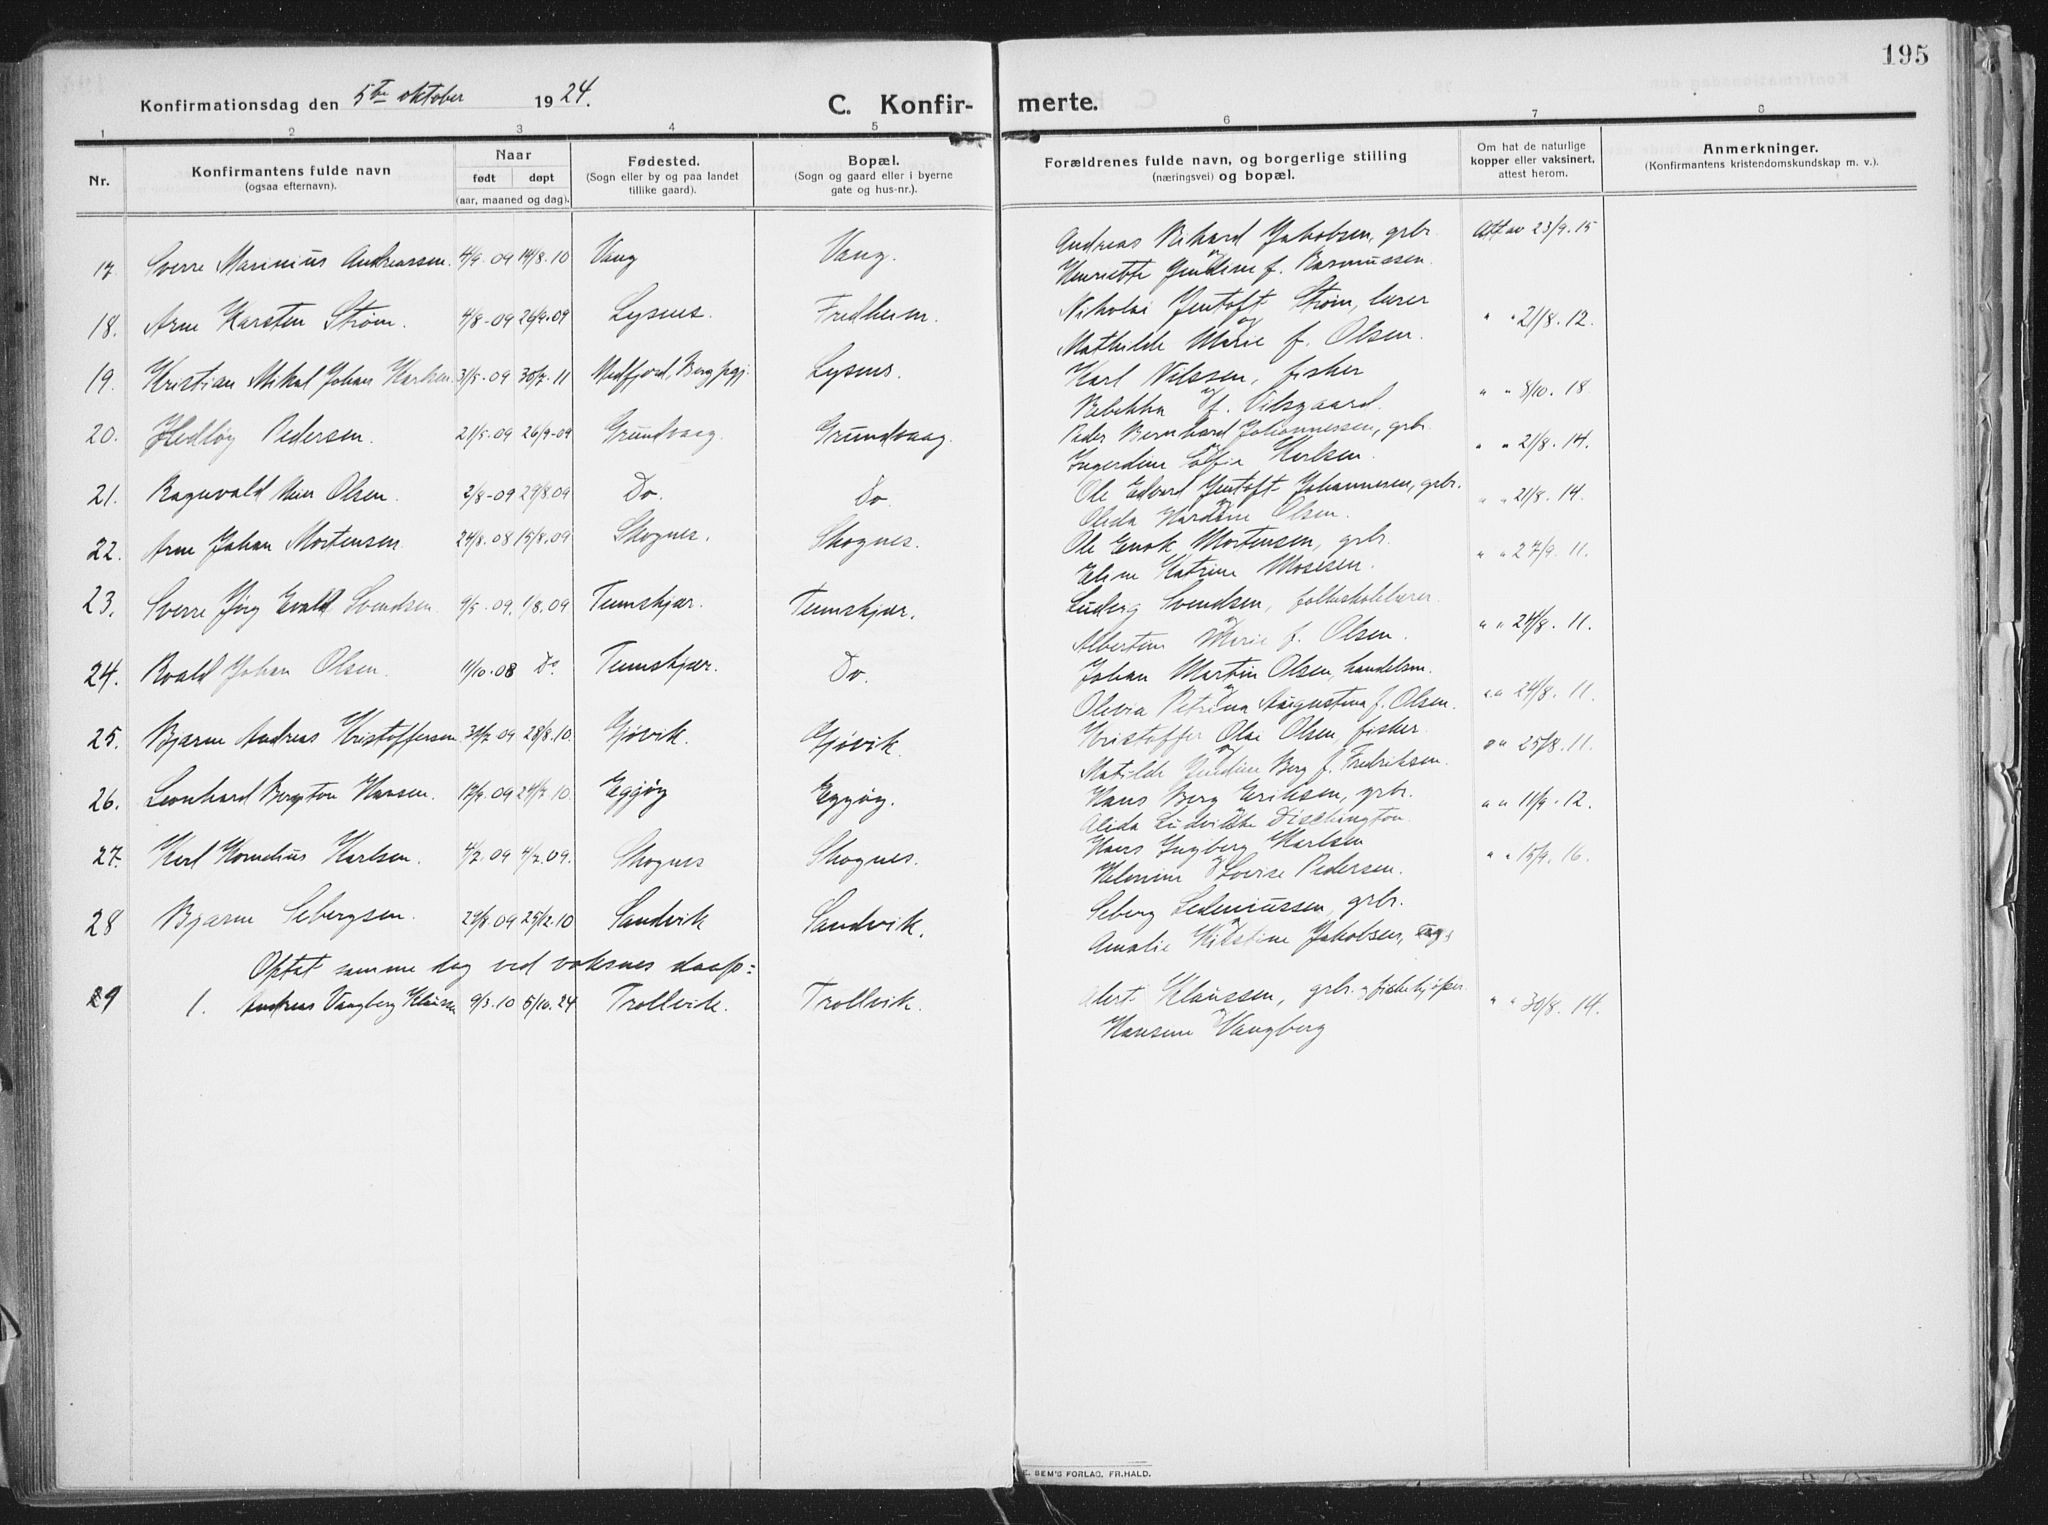 195
Konfirmationsdag den 5te oktober 1924.
C. Konfirmerte.
1 2 3 4 5 6 7 8
Nr.
Konfirmantens fulde navn
(ogsaa efternavn).
Naar
født døpt
(aar, maaned og dag).
Fødested.
(Sogn eller by og paa landet
tillike gaard).
Bopæl.
(Sogn og gaard eller i byerne
gate og hus-nr.).
Forældrenes fulde navn, og borgerlige stilling
(næringsvei) og bopæl.
Om hat de naturlige
kopper eller vaksinert,
attest herom.
Anmerkninger.
(Konfirmantens kristendomskundskap m. v.).
17. Sverre Marinius Andreassen 4/9-09 14/8.10 Vang Vang. Andreas Rikard Jakobsen, grbr. Att av 23/9.15
og
Henriette Jendine f. Rasmussen.
18. Arne Karsten Strøm. 4/8-09 26/9.09 Lysnes. Fredheim. Nikolai Jentoft Strøm, lærer " " 21/8.12.
og
Mathilde Marie f. Olsen.
19. Kristian Mikal Johan Karlsen 31/5-09 30/7.11 Medfjord, Berg pgj. Lysnes. Karl Nilssen, fisker " " 8/10.18
og
Rebekka f. Vilsgaard.
20. Hedløg Pedersen. 21/5-09 26/9-09 Grundvaag. Grundvaag. Peder Bernhard Johannessen, grbr. " " 21/8.14.
og
Ingerdine Sofia Karlsen.
21. Ragnvald Olsen. 2/8-09 29/8.09 Do. Do. Ole Edvard Jentoft Johannesen, grbr. " " 21/8.14.
og
Olida Olsen.
22. Arne Johan Mortensen 24/8.08 15/8.09 Skognes. Skognes. Ole Enok Mortensen, grbr. " " 27/9.11.
Eline Katrine Mosesen.
23. Sverre Jørg Evald Svendsen 9/5.09. 1/8.09 Tennskjær. Tennskjær. Ludvig Svendsen, folkeskolelærer. " " 24/8.11.
og
Albertine Marie f. Olsen.
24. Roald Johan Olsen. 11/10.08 Do. Tennskjær. Do. Johan Martin Olsen, handelsm. " " 24/8.11.
og
Olevia Petrina Augustina f. Olsen.
25. Bjarne Andreas Kristoffersen 31/7.09 28/8.10. Gjøvik. Gjøvik. Kristoffer Olai Olsen, fisker. " " 25/8.11.
og
Matilde Jendine Berg f. Fredriksen.
26. Leonhard Bergiton Hansen. 17/9.09 24/7.10. Eggjøy Eggjøy. Hans Berg Eriksen, grbr. " " 11/9.12.
Alida Ludvikke Dischington.
27. Karl Kornelius Karlsen. 4/2.09 4/7.09. Skognes Skognes. Hans Ingberg Karlsen " " 15/9.16.
og
Helmine Lovise Pedersen.
28 Bjarne Sebergsen. 29/8.09 25/12.10 Sandvik Sandvik. Seberg Sedeniussen, grbr.
og
Amalie Kristine Jakobsen,
Optat samme dag ved voksnes daap:
29 1. Andreas Vangberg Klaussen 9/3.10 5/10.24 Trollvik. Trollvik. Albert Klaussen, grbr. og fiskekjøper. " " 30/8.14.
og
Hansine Vangberg
E. SEM'S FORLAG, FR.HALD.